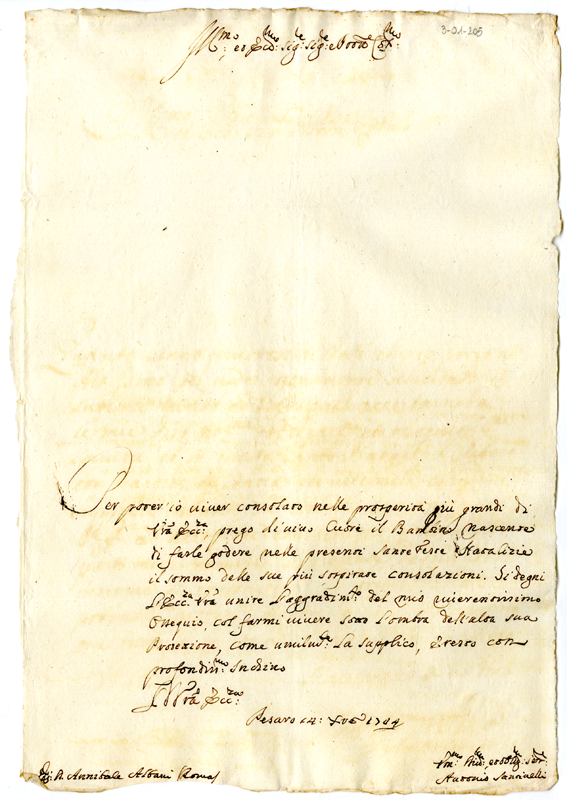 3-01-205
Ill.mo et Ecc.mo Sig.re Sig.re e Pron Col.mo
Per poter io viver consolato nelle prosperità più grandi di
Vrã Ecc.za prego di vivo Cuore il Bambino nascente
di farle godere nelle presenti Sante Feste Natalizie
il sommo delle sue più sospirate consolazioni. Si degni
l'Ecc.za Vrã unire l'aggradim.to del mio riverentissimo
Ossequio, col farmi vivere sotto l'ombra dell'alta sua
Protezione, come umilm.te la supplico, e resto con
profondiss.mo Inchino
Di Vrã Ecc.za
Pesaro 14: Xbre 1704
D. Annibale Albani Roma
Um.mo et obblig.mo Ser.re
Antonio